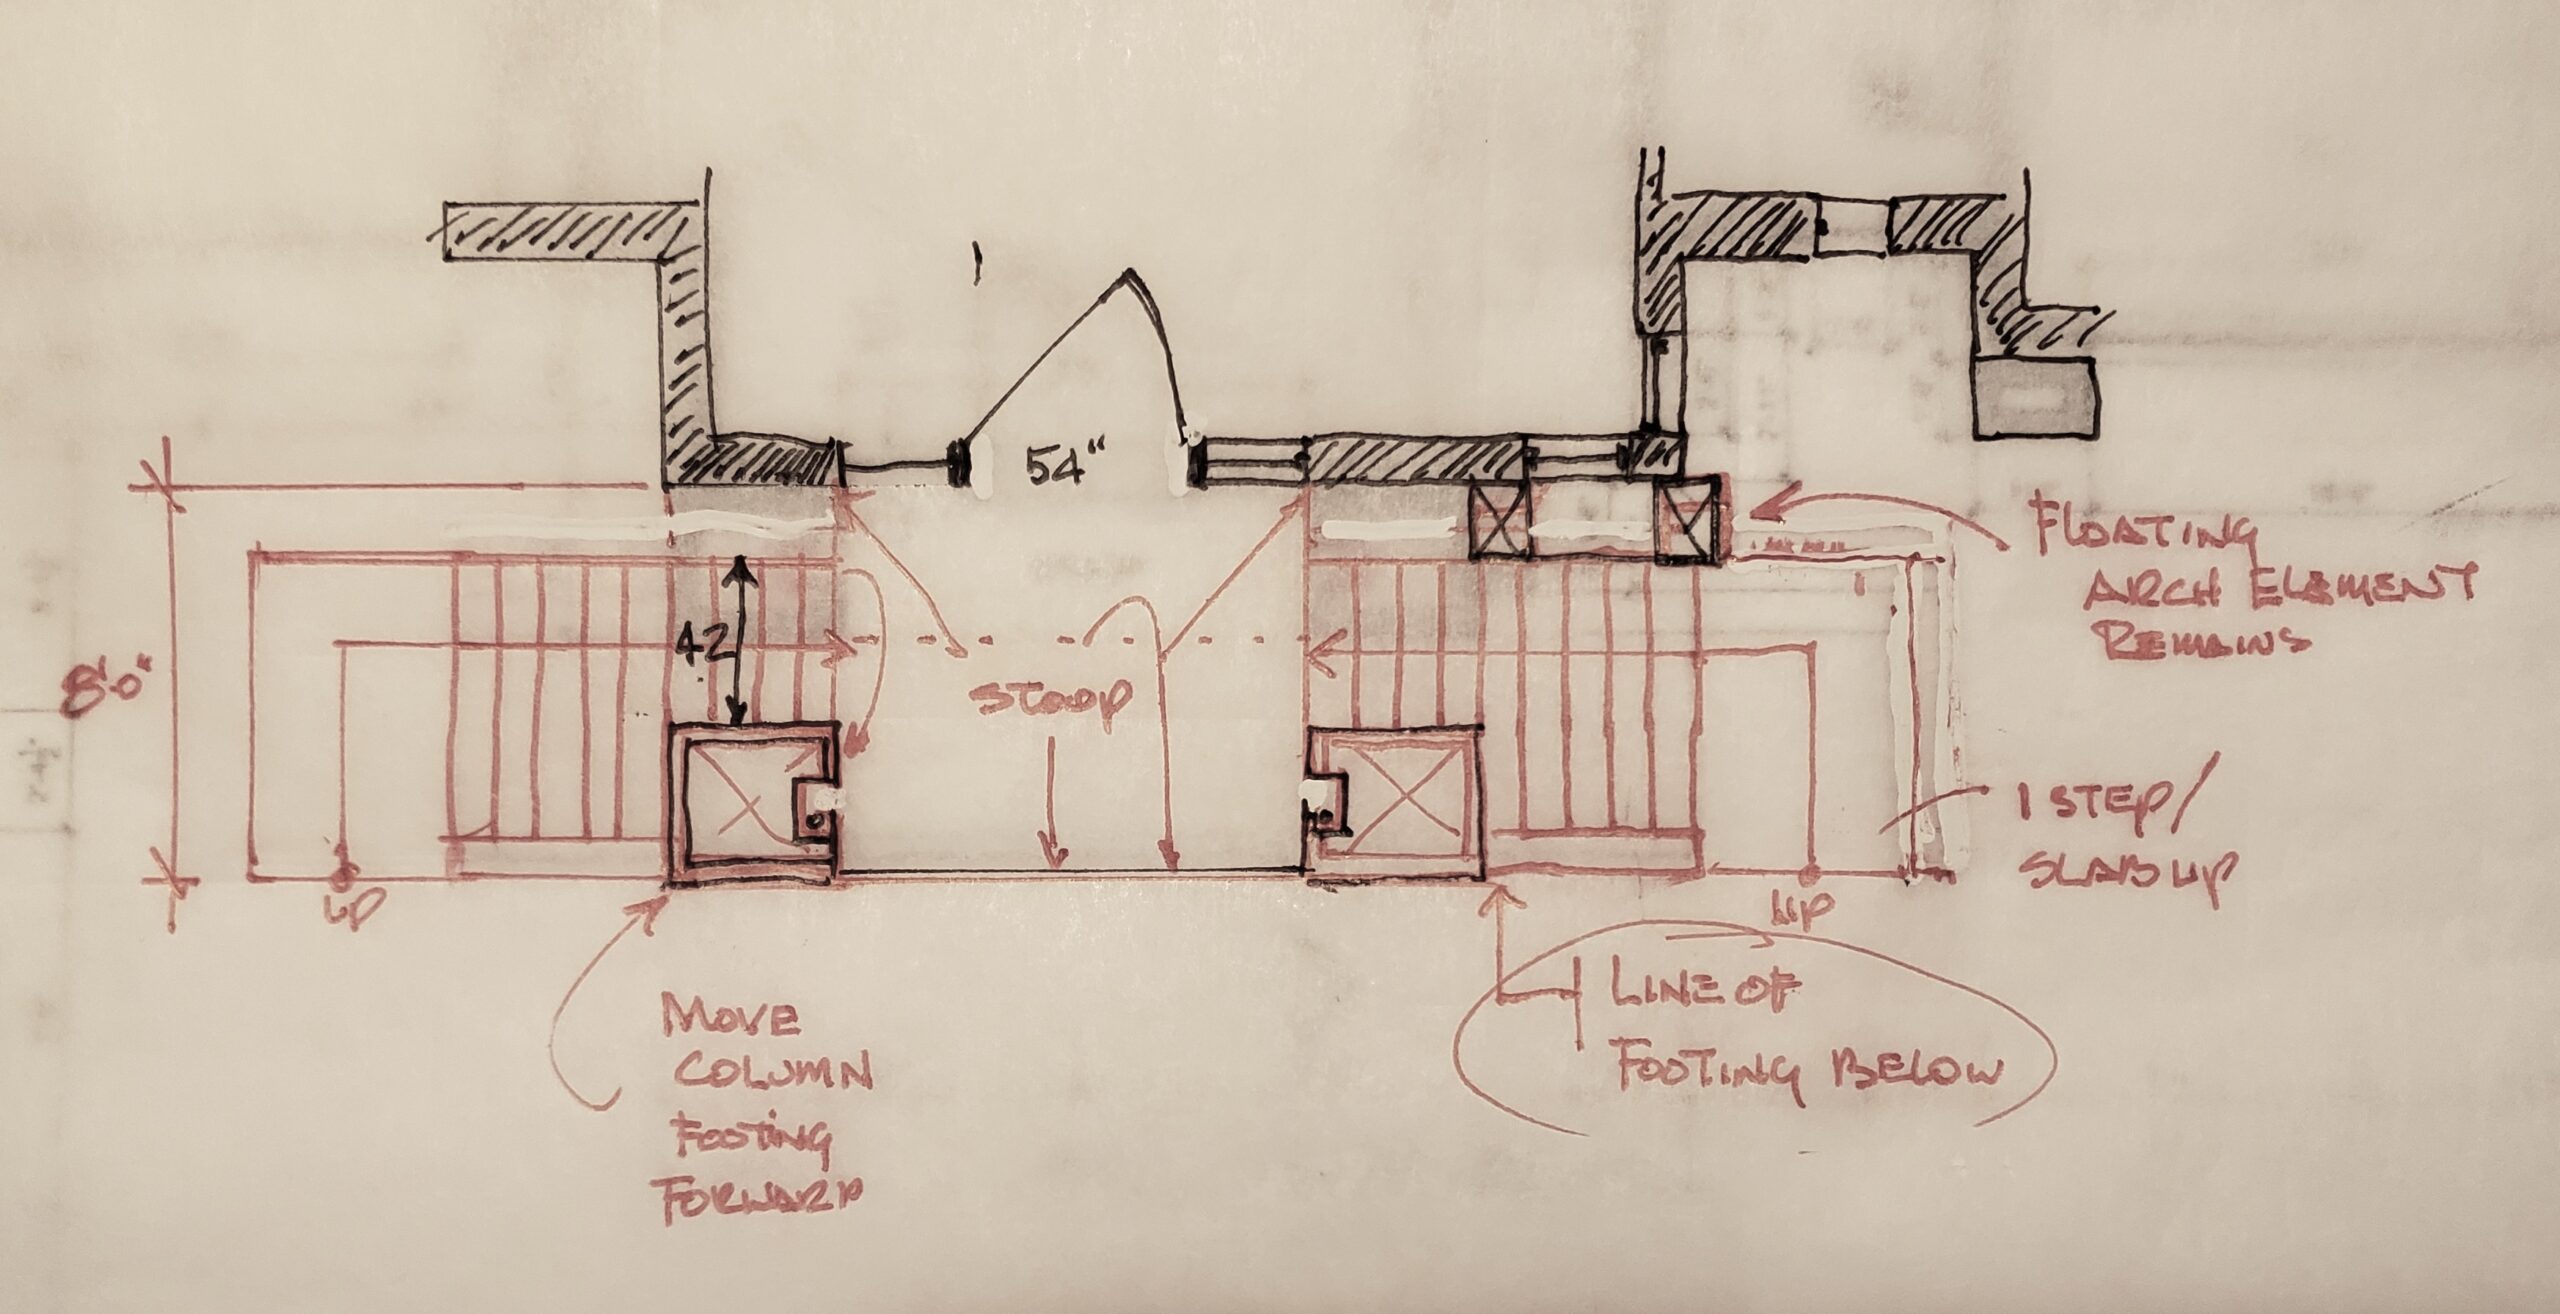 54"
FLOATING
ARCH ELEMENT
REMAINS
42
8'-0"
STOOP
1 STEP/
SLAB UP
UP
UP
MOVE
COLUMN
FOOTING
FORWARD
LINE OF
FOOTING BELOW